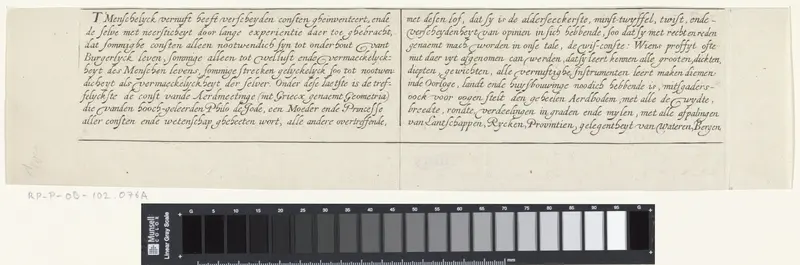 T Menschelyck vernuft heeft verscheyden consten gheinventeert, ende
de selve met neersticheyt door lange experientie daer toe ghebracht,
dat sommighe consten alleen nootwendich syn tot onderhout vant
Burgerlyck leven, sommige alleen tot vellust ende vermaeckelyck:
heyt des Menschen levens, sommige strecken gelyckelyck soo tot nootwen
dicheyt als vermaeckelyckheyt der selver. Onder dese laetste is de tref-
felyckste de const vande Aerdmeetinge (int Griecx genaemt Geometria)
die vanden hooch-geleerden Philo de Jode, een Moeder ende Princesse
aller consten ende wetenschap gheheeten wort, alle andere overtreffende,
met desen lof, dat sy is de alderseeckerste, minst twyffel, twist, ende-
verscheydenheyt van opinien in sich hebbende, soo dat sy met rechten reden
genaemt mach worden in onse tale, de wis-conste: Wiens proffyt ofte
nut daer uyt afgenomen can werden, dat sy leert kennen alle grooten, dickten,
diepten gewichten, alle vernuftighe Instrumenten leert maken diemen
inde Oorloge, landt ende huysbouwinge noodich hebbende is, mitsgaders-
oock voor oogen stelt den geheelen Aerdbodem, met alle de wydte,
breede, ronde verdeelingen in graden ende mylen, met alle afpalingen
van Lantschappen, Rycken, Provintien, gelegentheyt van Wateren, Bergen
RP-P-OB-102.076A
Munsell
COLOR
Linear Gray Scale
G 5 10 15 20 25 30 35 40 45 50 55 60 65 70 75 80 85 90 95 G
mm